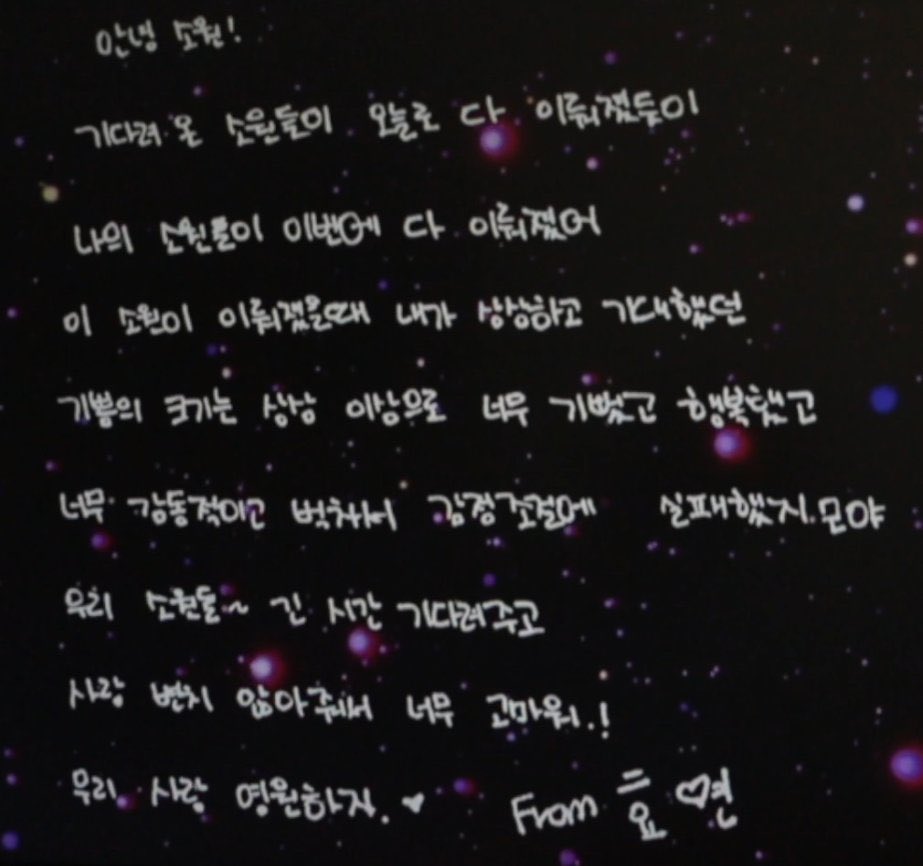 안녕 소원!
기다려 온 소원들이 오늘로 다 이뤄졌듯이
나의 소원들이 이번에 다 이뤄졌어
이 소원이 이뤄졌을때 내가 상상하고 기대했던
기쁨의 크기는 상상 이상으로 너무 기뻤고 행복했고
너무 감동적이고 벅차서 감정조절에 실패했지.모야
우리 소원들~ 긴 시간 기다려주고
사랑 변치 않아줘서 너무 고마워.!
우리 사랑 영원하자.♥ From 효♡연